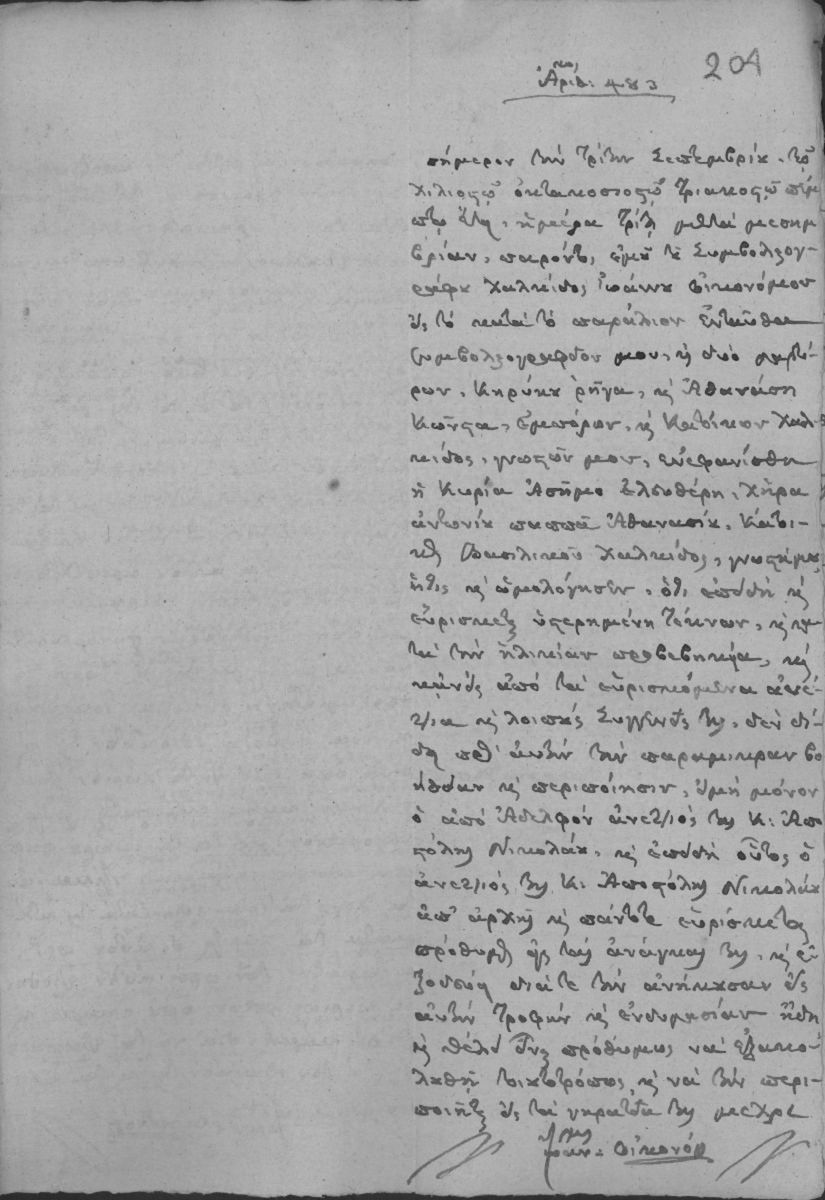 204
Ἀριθ: 483
σήμερον τὴν τρίτην Σεπτεμβρίου τοῦ
χιλιοστοῦ ὀκτακοσιοστοῦ τριακοστοῦ πέμ
πτου ἔτους, ἡμέρα τρίτη μετὰ μεσημ
βρίαν, παρόντος ἐμοῦ τοῦ Συμβολαιογ-
ράφου Χαλκίδος Ἰωάννου Οἰκονόμου
εἰς τὸ κατὰ τὸ παράλιον ἐνταῦθα
συμβολαιογραφεῖον μου, καὶ δύο μαρτύ-
ρων, Κηρύκου ῥήγα, καὶ Ἀθανάση
Κώνστα, ἐμπόρων, καὶ κατοίκων Χαλ
κίδος, γνωστῶν μου, ἐνεφανίσθη
ἡ Κυρία Ἀσήμο Ἐλευθέρη, χήρα
ἀντωνίου παππᾶ Ἀθανασίου, κάτοι-
κος Βασιλικοῦ Χαλκίδος, γνωστή μου,
ἥτις καὶ ὡμολόγησεν, ὅτι ἐπειδὴ καὶ
εὑρίσκεται ὑστερημένη τέκνων, καὶ κα
τὰ τὴν ἡλικίαν προβεβηκυῖα, καὶ
κανεὶς ἀπὸ τὰ εὑρισκόμενα ἀνέ-
ψια καὶ λοιποὺς Συγγενεῖς της, δὲν δί-
δει πρὸς αὐτὴν τὴν παραμικρὰν βο
ήθειαν καὶ περιποίησιν, εἰμὴ μόνον
ὁ ἀπὸ Ἀδελφὸν ἀνεψιός της Κ: Ἀπο
στόλης Νικολάου, καὶ ἐπειδὴ οὗτος ὁ
ἀνεψιός της Κ: Ἀποστόλης Νικολάου
ἀπ' ἀρχῆς καὶ πάντοτε εὑρίσκεται
πρόθυμος εἰς τὰς ἀνάγκας της, καὶ ἐ
ξοδεύει διά τε τὴν ἀνήκουσαν εἰς
αὐτὴν τροφὴν καὶ ἐνδυμασίαν ἤδη
καὶ θέλει πρόθυμος νὰ ἐξακο-
λουθῇ τοιουτοτρόπως καὶ νὰ τὴν περι-
ποιῆται εἰς τὰ γηρατεῖα της μέχρι
Ἰωάν: Οἰκονόμου